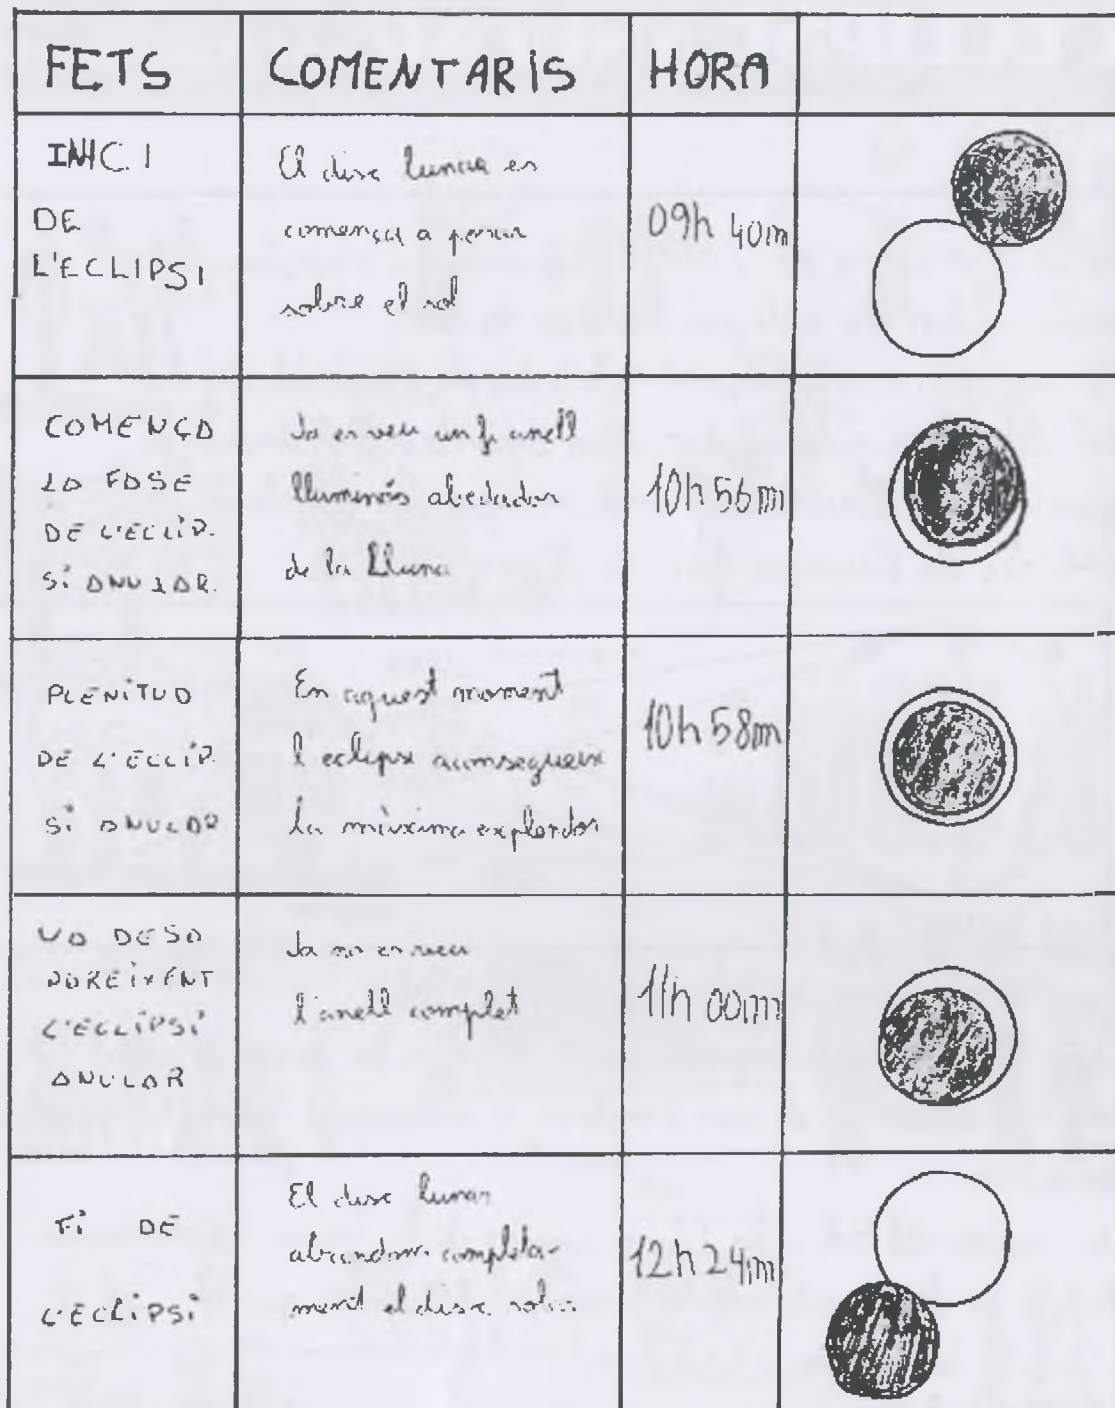 FETS
COMENTARIS
HORA
INICI
DE
L'ECLIPSI
El disc lunar es
comença a posar
sobre el sol
09h 40m
COMENÇA
LA FASE
DE L'ECLIP-
SI ANULAR.
Ja es veu un fi anell
lluminós alredador
de la Lluna
10h 56m
PLENITUD
DE L'ECLIP-
SI ANULAR
En aquest moment
l'eclipse aconsegueix
la màxima explendor
10h 58m
VA DESA
PAREIXENT
L'ECLIPSI
ANULAR
Ja no es veu
l'anell complet
11h 00m
FI DE
L'ECLIPSI
El disc lunar
abandona completa-
ment el disc solar
12h 24m